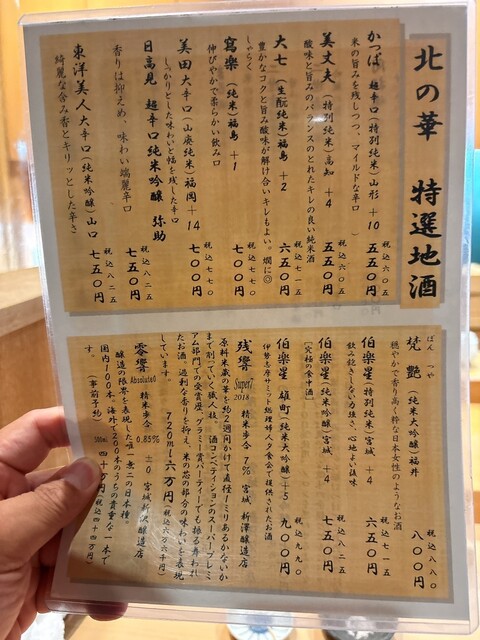 北の華 特選地酒
かっぱ 超辛口(特別純米)山形 +10 五五〇円
税込六〇五
米の旨みを残しつつ、マイルドな辛口
美丈夫(特別純米)高知 +4 五五〇円
税込六〇五
酸味と旨みのバランスのとれたキレの良い純米酒
大七(生酛純米)福島 +2 六五〇円
税込七一五
豊かなコクと旨み酸味が解け合いキレもよい。燗に◎
しゃらく
寫楽(純米)福島 +1 七〇〇円
税込七七〇
伸びやかで柔らかい飲み口
美田大辛口(山廃純米)福岡 +14 七〇〇円
税込七七〇
しっかりとした味わいと幅を残した辛口
日高見 超辛口純米吟醸 弥助 七五〇円
税込八二五
香りは抑えめ、味わい端麗辛口
東洋美人大辛口(純米吟醸)山口 七五〇円
税込八二五
綺麗な含み香とキリッとした辛さ
ぼん つや
梵 艶(純米大吟醸)福井 八〇〇円
税込八八〇
穏やかで香り高く粋な日本女性のようなお酒
伯楽星(特別純米)宮城 +4 六五〇円
税込七一五
飲み飽きしない力強さ、心地よい後味
伯楽星(純米吟醸)宮城 +4 七五〇円
税込八二五
[究極の食中酒]
伯楽星 雄町(純米大吟醸)+5 九〇〇円
税込九九〇
伊勢志摩サミット総理婦人夕食会で提供されたお酒
残響 Super7 2018 精米歩合 7% 宮城 新澤醸造店
原料米蔵の華を約2週間かけて直径1ミリあるかないか
まで削っていく職人技。酒コンペティションのスーパープレミ
アム部門での受賞歴。グラミー賞パーティーでも振る舞われ
たお酒。過剰な香りを抑え、米の芯の部分の味わいを表現
しています。 720ml 六万円(税込六万六千円)
零響 Absolute0 精米歩合 0.85% ±0 宮城新沢醸造店
醸造の限界を表現した唯一無二の日本酒。
国内100本。海外で200本のうちの貴重な一本で
す。(事前予約) 500ml 四十万円(税込四十四万円)